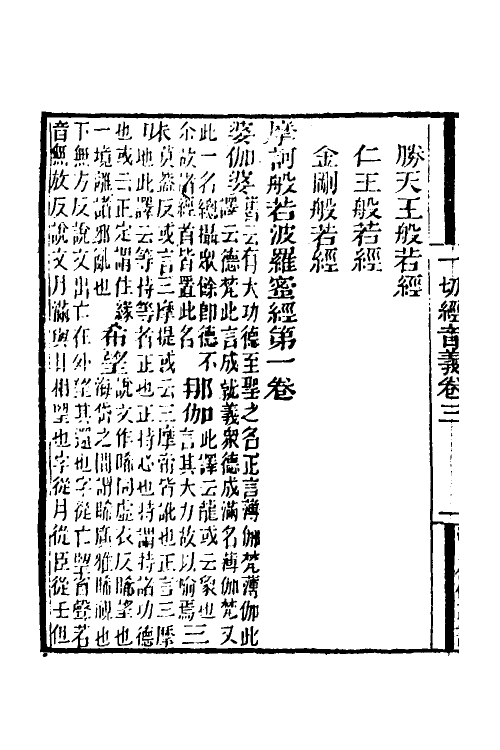 一切經音義卷三
勝天王般若經
仁王般若經
金剛般若經
摩訶般若波羅蜜經第一卷
婆伽婆舊云有大功德至聖之名正言薄伽梵薄伽此
譯云德梵此言成就義衆德成滿名薄伽梵又
此一名總攝衆餘卽德不
尒故諸經首皆置此名
那伽此譯云龍或云象也
言其大力故以喻焉
三
未莫葢反或言三摩提或云三摩帝皆訛也正言三摩
地此譯云等持等者正也正持心也持謂持諸功德
也或云正定謂住緣
一境離諸邪亂也
希望說文作睎同虛衣反睎望也
海岱之間謂睎廣雅睎視也
下無方反說文出亡在外望其還也字從亡朢省聲若
音無放反說文月滿與日相朢也字從月從臣從壬但